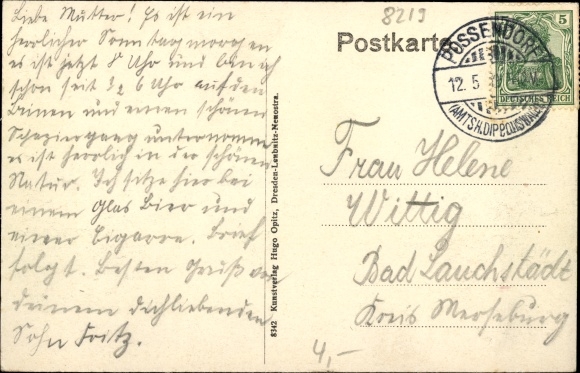 Liebe Mutter! Es ist ein
herrlicher Sonntagmorgen
es ist jetzt 8 Uhr und bin ich
schon seit 1/2 6 Uhr auf den
Beinen und einen schönen
Spaziergang unternommen
es ist herrlich in der schönen
Natur. Ich sitze hier bei
einem Glas Bier und
einer Cigarre. Brief
folgt. Besten Gruß von
deinem dichliebenden
Sohn Fritz.
8342 Kunstverlag Hugo Opitz, Dresden-Leubnitz-Neuostra.
8219
Postkarte
POSSENDORF
12. 5
(AMTSH. DIPPOLDISWALDE)
5
DEUTSCHES REICH
Frau Helene
Wittig
Bad Lauchstädt
Kreis Merseburg
4,-